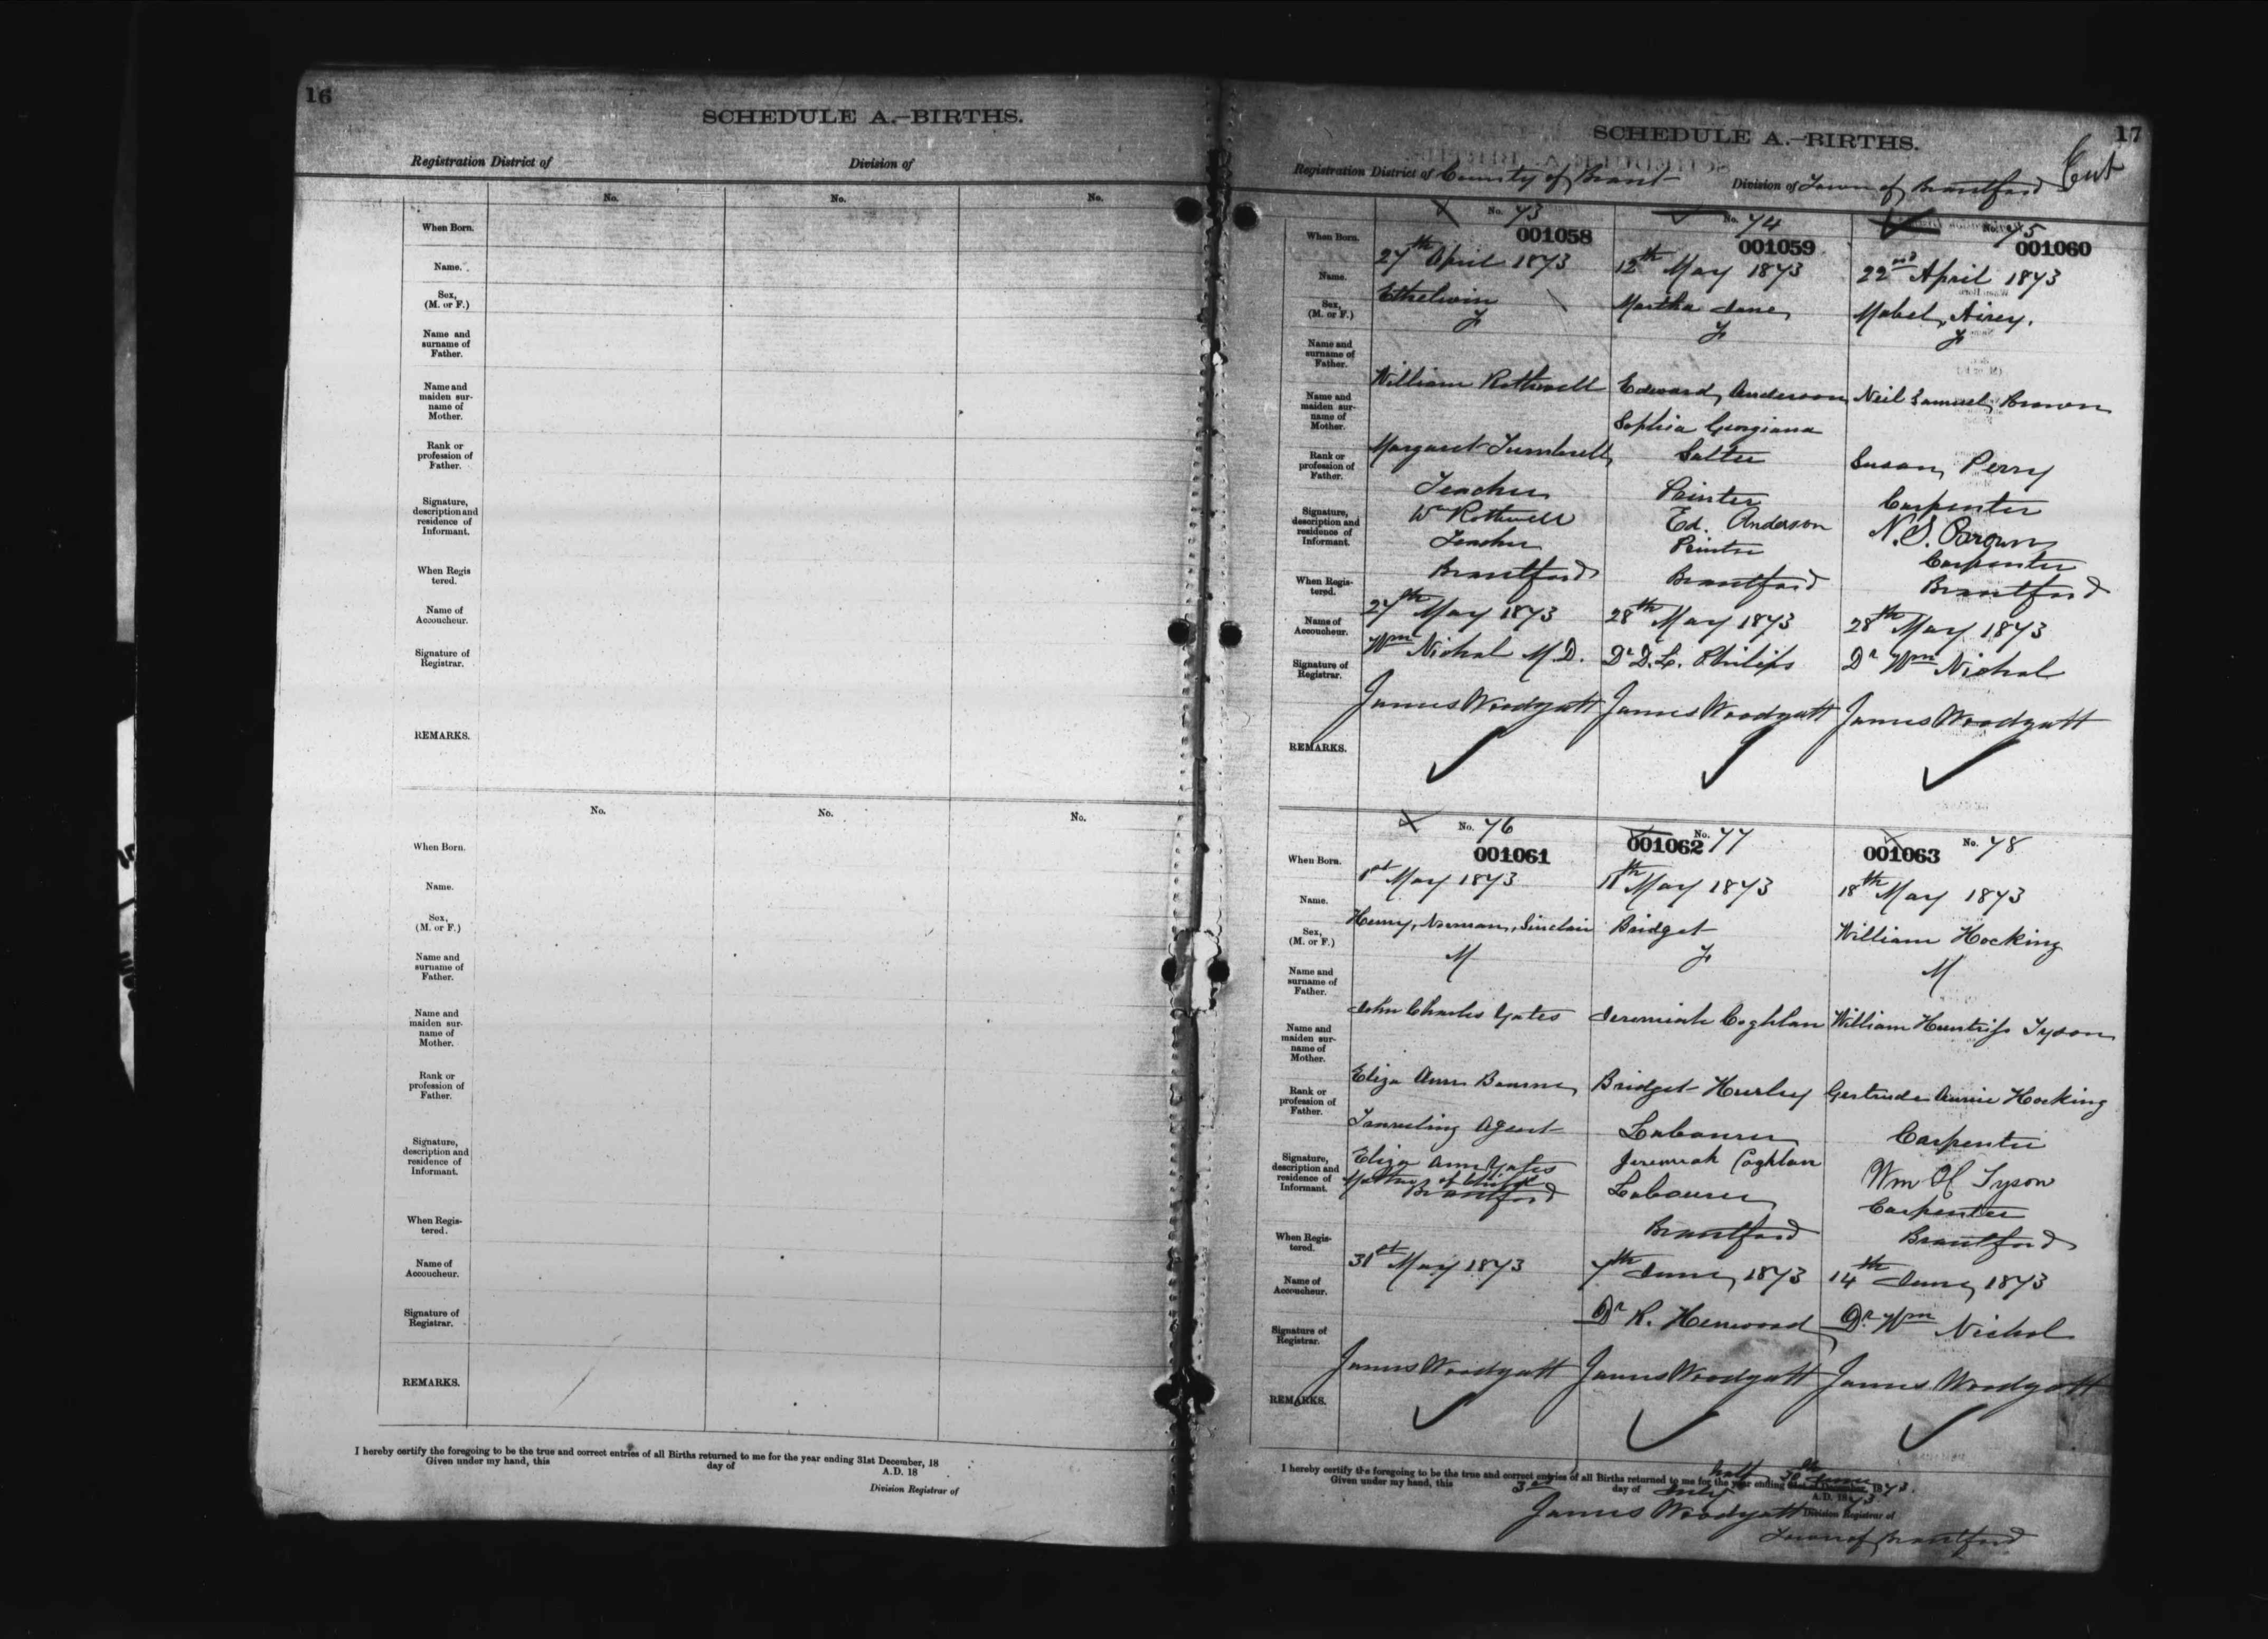 16
SCHEDULE A.—BIRTHS.
Registration District of Division of
No. No. No.
When Born.
Name.
Sex,
(M. or F.)
Name and
surname of
Father.
Name and
maiden sur-
name of
Mother.
Rank or
profession of
Father.
Signature,
description and
residence of
Informant.
When Regis
tered.
Name of
Accoucheur.
Signature of
Registrar.
REMARKS.
No. No. No.
When Born.
Name.
Sex,
(M. or F.)
Name and
surname of
Father.
Name and
maiden sur-
name of
Mother.
Rank or
profession of
Father.
Signature,
description and
residence of
Informant.
When Regis-
tered.
Name of
Accoucheur.
Signature of
Registrar.
REMARKS.
I hereby certify the foregoing to be the true and correct entries of all Births returned to me for the year ending 31st December, 18
Given under my hand, this day of A.D. 18
Division Registrar of
17
SCHEDULE A.—BIRTHS.
Registration District of County of Brant Division of Town of Brantford
No. 73 No. 74 No. 75
001058 001059 001060
When Born. 27th April 1873 12th May 1873 22nd April 1873
Name. Ethelwin Martha Jane Mabel Airey.
Sex,
(M. or F.) F F F
Name and
surname of
Father. William Rothwell Edward Anderson Neil Samuel Brown
Name and
maiden sur-
name of
Mother. Margaret Sophia Georgiana
Salter Susan Perry
Rank or
profession of
Father. Teacher Printer Carpenter
Signature,
description and
residence of
Informant. Wm Rothwell Ed. Anderson N. S. Brown
Teacher Printer Carpenter
Brantford Brantford Brantford
When Regis-
tered. 27th May 1873 28th May 1873 28th May 1873
Name of
Accoucheur. Wm Nichol M.D. Dr D.L. Philips Dr Wm Nichol
Signature of
Registrar. James Woodyatt James Woodyatt James Woodyatt
REMARKS.
No. 76 No. 77 No. 78
001061 001062 001063
When Born. 1st May 1873 11th May 1873 18th May 1873
Name. Henry, Norman, Sinclair Bridget William Hocking
Sex,
(M. or F.) M F M
Name and
surname of
Father. John Charles Yates Jeremiah Coghlan William Huntriss Tyson
Name and
maiden sur-
name of
Mother. Eliza Ann Bridget Hurley Gertrude Annie Hocking
Rank or
profession of
Father. Traveling Agent Labourer Carpenter
Signature,
description and
residence of
Informant. Eliza Ann Yates Jeremiah Coghlan Wm H Tyson
Mother of Child Labourer Carpenter
Brantford Brantford Brantford
When Regis-
tered. 31st May 1873 7th June 1873 14th June 1873
Name of
Accoucheur. Dr R. Henwood Dr Wm Nichol
Signature of
Registrar. James Woodyatt James Woodyatt James Woodyatt
REMARKS.
I hereby certify the foregoing to be the true and correct entries of all Births returned to me for the half year ending 30th June 1873.
Given under my hand, this 3rd day of July A.D. 1873
James Woodyatt Division Registrar of
Town of Brantford